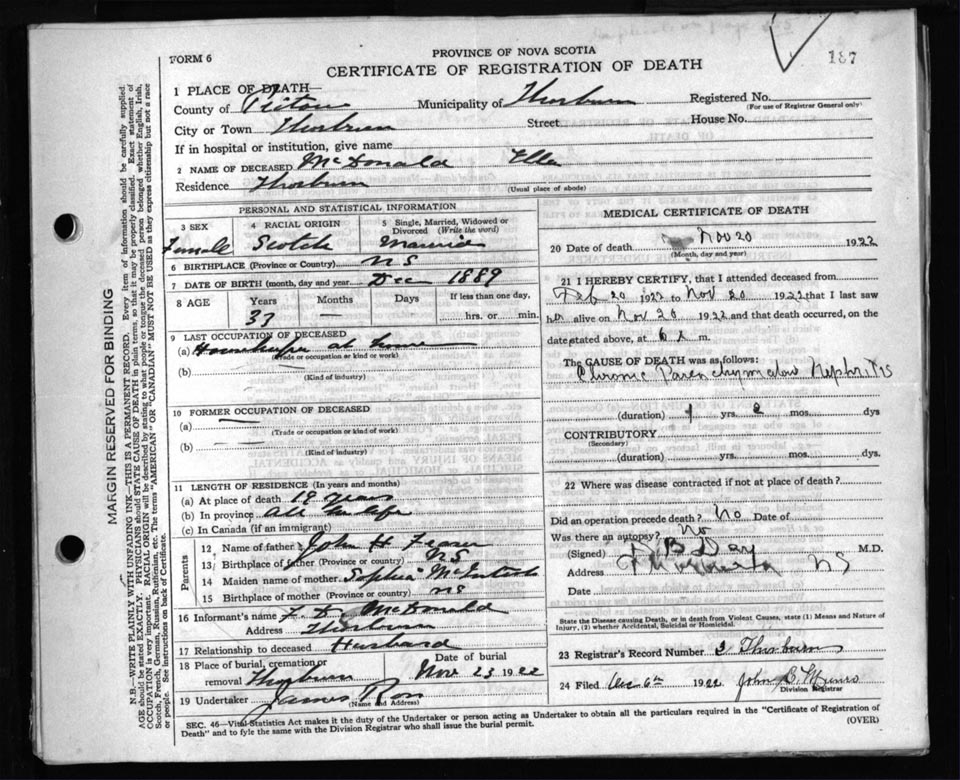 187
FORM 6
PROVINCE OF NOVA SCOTIA
CERTIFICATE OF REGISTRATION OF DEATH
1 PLACE OF DEATH—
County of Pictou Municipality of Thorburn Registered No.
(For use of Registrar General only)
City or Town Thorburn Street House No.
If in hospital or institution, give name
2 NAME OF DECEASED McDonald Ellen
Residence Thorburn
(Usual place of abode)
PERSONAL AND STATISTICAL INFORMATION
3 SEX 4 RACIAL ORIGIN 5 Single, Married, Widowed or Divorced (Write the word)
Female Scotch Married
6 BIRTHPLACE (Province or Country) NS
7 DATE OF BIRTH (month, day and year) Dec 1889
8 AGE Years Months Days If less than one day,
33 — hrs. or min.
9 LAST OCCUPATION OF DECEASED
(a) Housekeeper at home
(Trade or occupation or kind of work)
(b)
(Kind of industry)
10 FORMER OCCUPATION OF DECEASED
(a) —
(Trade or occupation or kind of work)
(b) — —
(Kind of industry)
11 LENGTH OF RESIDENCE (In years and months)
(a) At place of death 19 years
(b) In province All her life
(c) In Canada (if an immigrant)
Parents
12 Name of father John H Fraser
13 Birthplace of father (Province or country) NS
14 Maiden name of mother Sophia McIntosh
15 Birthplace of mother (Province or country) NS
16 Informant's name F. D. McDonald
Address Thorburn
17 Relationship to deceased Husband
18 Place of burial, cremation or removal Thorburn Date of burial Nov 23 1922
19 Undertaker James Ross
(Name and Address)
MEDICAL CERTIFICATE OF DEATH
20 Date of death Nov 20 1922
(Month, day and year)
21 I HEREBY CERTIFY, that I attended deceased from
Feb 20 1922 to Nov 20 1922 that I last saw
her alive on Nov 20 1922 and that death occurred, on the
date stated above, at 6 a m.
The CAUSE OF DEATH was as follows:
Chronic Parenchymatous Nephritis
(duration) 1 yrs. 2 mos. dys
CONTRIBUTORY
(Secondary)
(duration) yrs. mos. dys.
22 Where was disease contracted if not at place of death?
Did an operation precede death? No Date of
Was there an autopsy? No
(Signed) D B Day M.D.
Address NS
Date
State the Disease causing Death, or in death from Violent Causes, state (1) Means and Nature of
Injury, (2) whether Accidental, Suicidal or Homicidal.
23 Registrar's Record Number 3 Thorburn
24 Filed Dec 6th 1922 John C Munro
Division Registrar
SEC. 46—Vital Statistics Act makes it the duty of the Undertaker or person acting as Undertaker to obtain all the particulars required in the "Certificate of Registration of
Death" and to fyle the same with the Division Registrar who shall issue the burial permit.
(OVER)
MARGIN RESERVED FOR BINDING
N.B.—WRITE PLAINLY WITH UNFADING INK—THIS IS A PERMANENT RECORD. Every item of information should be carefully supplied.
AGE should be stated EXACTLY. PHYSICIANS should STATE CAUSE OF DEATH in plain terms, so that it may be properly classified. Exact statement of
OCCUPATION is very important. RACIAL ORIGIN will be described by stating to what people or tongue the deceased person belonged whether English, Irish,
Scotch, French, German, Russian, Ruthenian, etc. The terms "AMERICAN" OR "CANADIAN" MUST NOT BE USED as they express citizenship but not a race
or people. See instructions on back of Certificate.